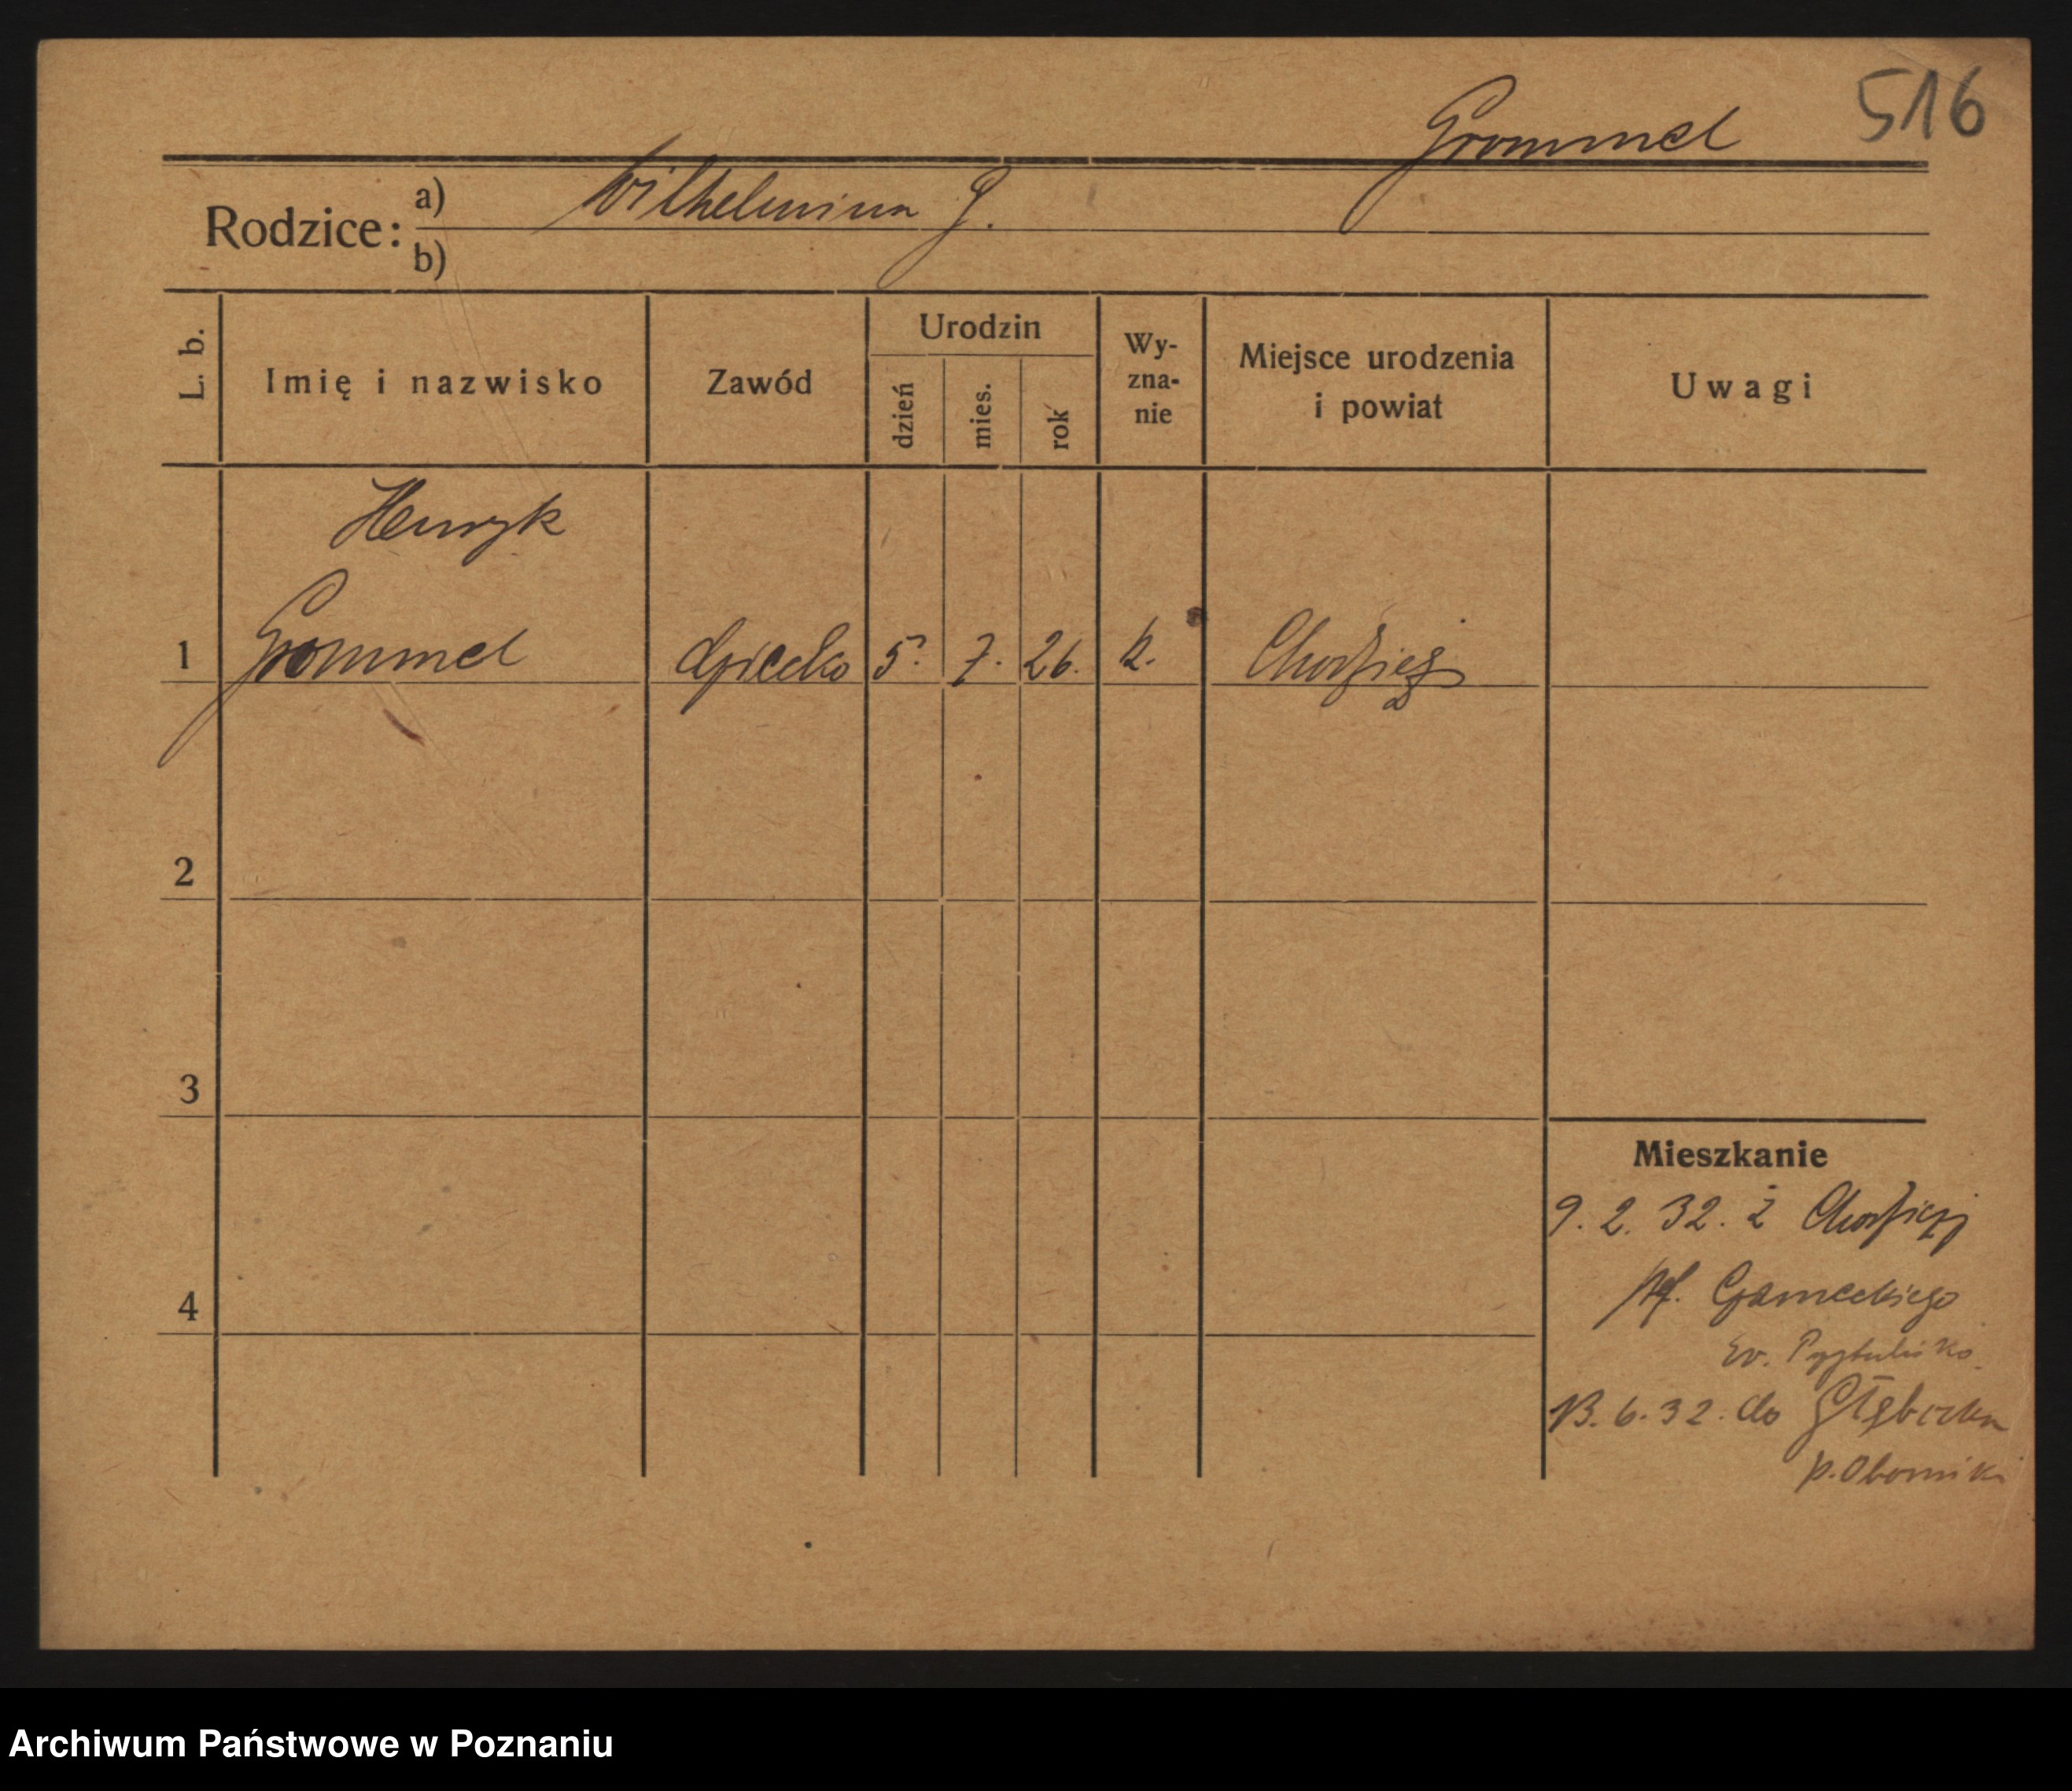 516
Grommel
Rodzice: a) Wilhelmina G.
b)
L. b. Imię i nazwisko Zawód Urodzin dzień mies. rok Wy-zna-nie Miejsce urodzenia i powiat Uwagi
Henryk
1 Grommel dziecko 5. 7. 26. k. Chodzież
2
3
4
Mieszkanie
9. 2. 32. z Chodzieży
Czarneckiego
Przytulisko
13. 6. 32. do Głęboczka
p. Oborniki
Archiwum Państwowe w Poznaniu